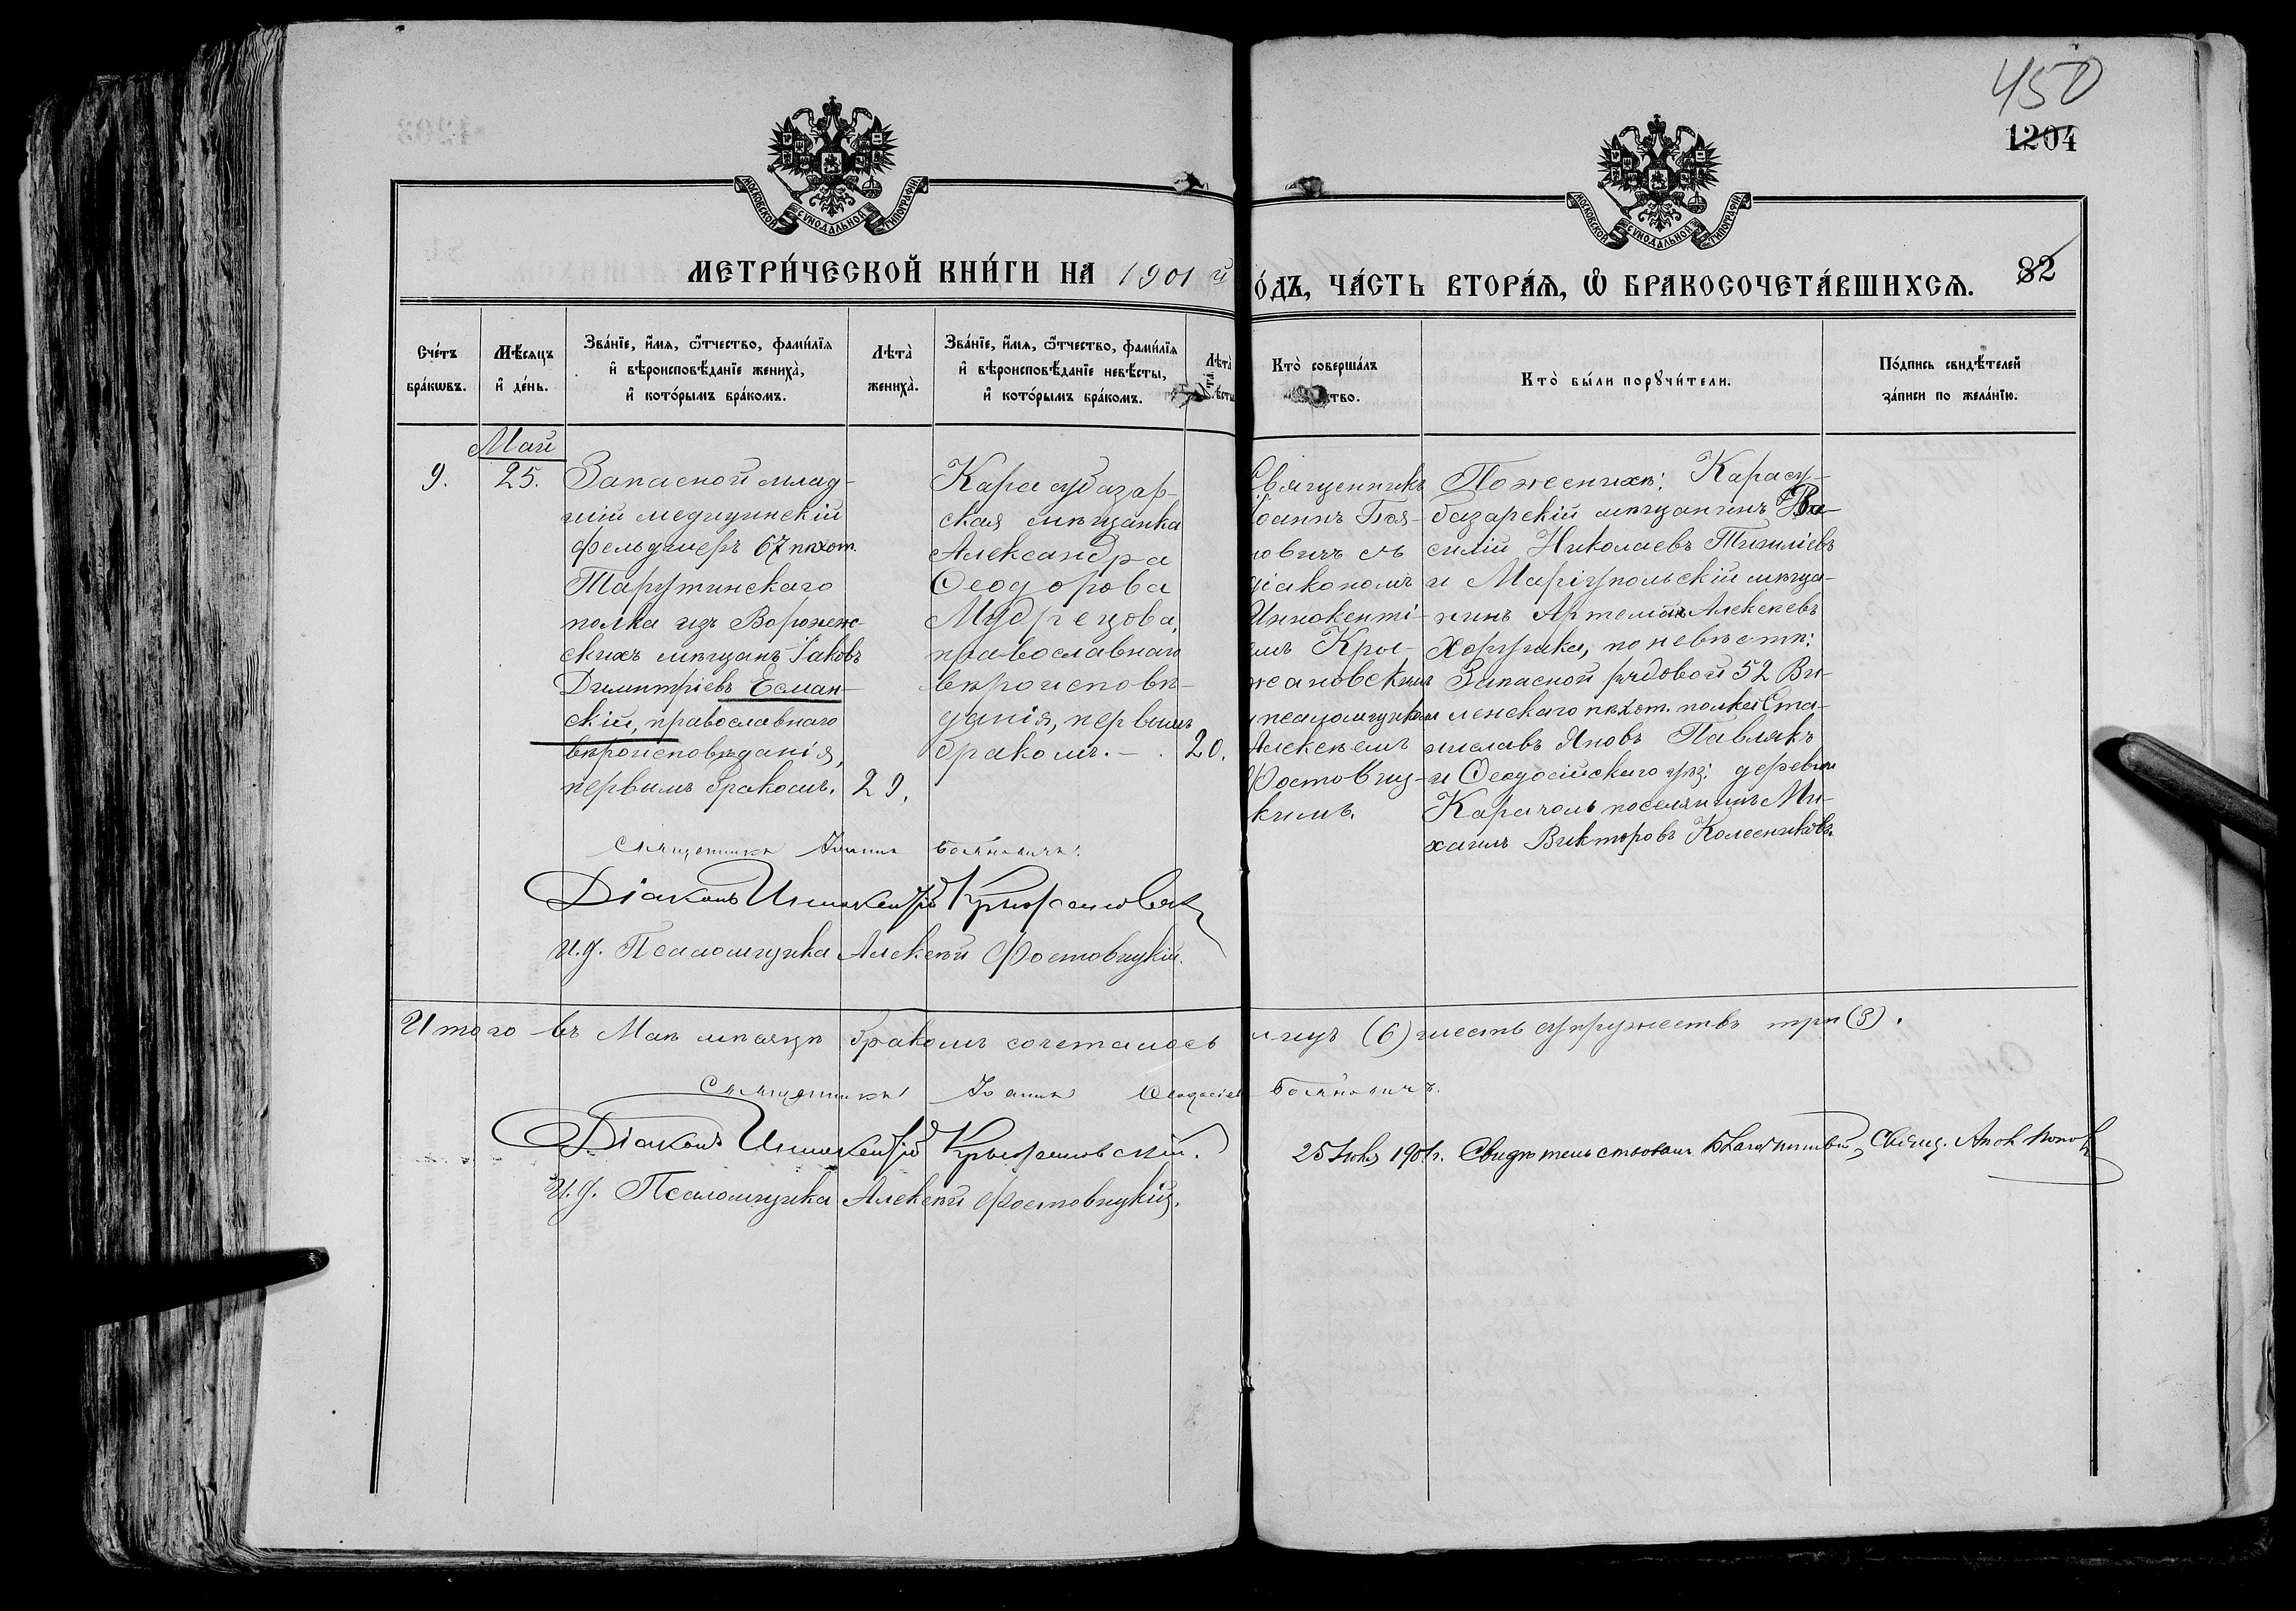 450
1204
МОСКОВСКОЙ СУНОДАЛЬНОЙ ТИПОГРАФІИ.
МОСКОВСКОЙ СУНОДАЛЬНОЙ ТИПОГРАФІИ.
МЕТРИ́ЧЕСКОЙ КНИ́ГИ НА 1901 й
О́ДЪ, ЧА́СТЬ ВТОРА́Ѧ, Ѡ҆ БРАКОСОЧЕТА́ВШИХСѦ.
82
Сче́тъ бра́кѡвъ.
Мѣ́сяцъ и҆ де́нь.
Зва́нїе, и҆́мѧ, ѻ҆́тчество, фами́лїѧ
и҆ вѣроисповѣ́данїе жениха̀,
и҆ кото́рымъ бра́комъ.
Лѣта̀ жениха̀.
Зва́нїе, и҆́мѧ, ѻ҆́тчество, фами́лїѧ
и҆ вѣроисповѣ́данїе невѣ́сты,
и҆ кото́рымъ бра́комъ.
Лѣта̀
Кто̀ соверша́лъ
тво.
Кто̀ бы́ли порꙋчи́тели.
По́дпись свидѣ́телей
за́писи по жела́нїю.
Май
9.
25.
Запасной млад-
шій медицинскій
фельдшеръ 67 пѣхот.
Тарутинскаго
полка изъ Воронеж-
скихъ мѣщанъ Іаковъ
Димитріевъ Есман-
скій, православнаго
вѣроисповѣданія,
первымъ бракомъ.
29.
Карасубазар-
ская мѣщанка
Александра
Ѳеодорова
Мудрецова,
православнаго
вѣроисповѣ-
данія, первымъ
бракомъ. —
20.
Священникъ
Іоаннъ Боя-
новичъ съ
діакономъ
Иннокенті-
емъ Кры-
жановскимъ
и псаломщикомъ
Алексѣемъ
Фостовиц-
кимъ.
По женихѣ: Карасу-
базарскій мѣщанинъ Ва-
силій Николаевъ
и Маріупольскій мѣща-
нинъ Алексѣевъ
по невѣстѣ:
Запасной рядовой 52 Ви-
ленскаго пѣхот. полка Ста-
ниславъ Яновъ Павлякъ
и Ѳеодосійскаго уѣз: деревни
поселянинъ Ми-
хаилъ Викторовъ Колесниковъ.
Священникъ Іоаннъ Бояновичъ.
Діаконъ Иннокентій Крыжановскій
И.д. Псаломщика Алексѣй Фостовицкій.
Итого въ Маѣ мѣсяцѣ бракомъ сочеталось лицъ (6) шесть супружествъ три (3).
Священникъ Іоаннъ Бояновичъ.
Діаконъ Иннокентій Крыжановскій.
25 1901 г. Свидѣтельствовалъ Благочинный, Свящ.
И.д. Псаломщика Алексѣй Фостовицкій.